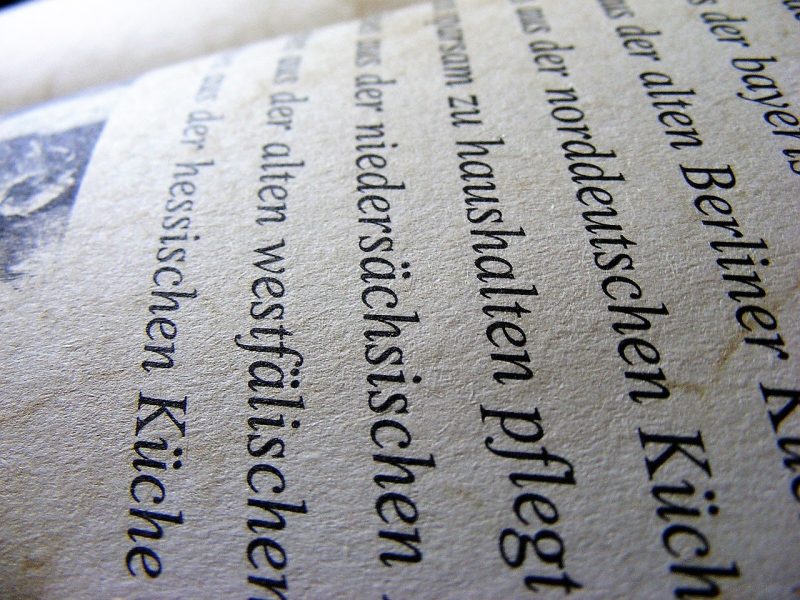 der bayeris
aus der alten Berliner Küc
aus der norddeutschen Küch
sparsam zu haushalten pflegt
aus der niedersächsischen
aus der alten westfälischen
aus der hessischen Küche